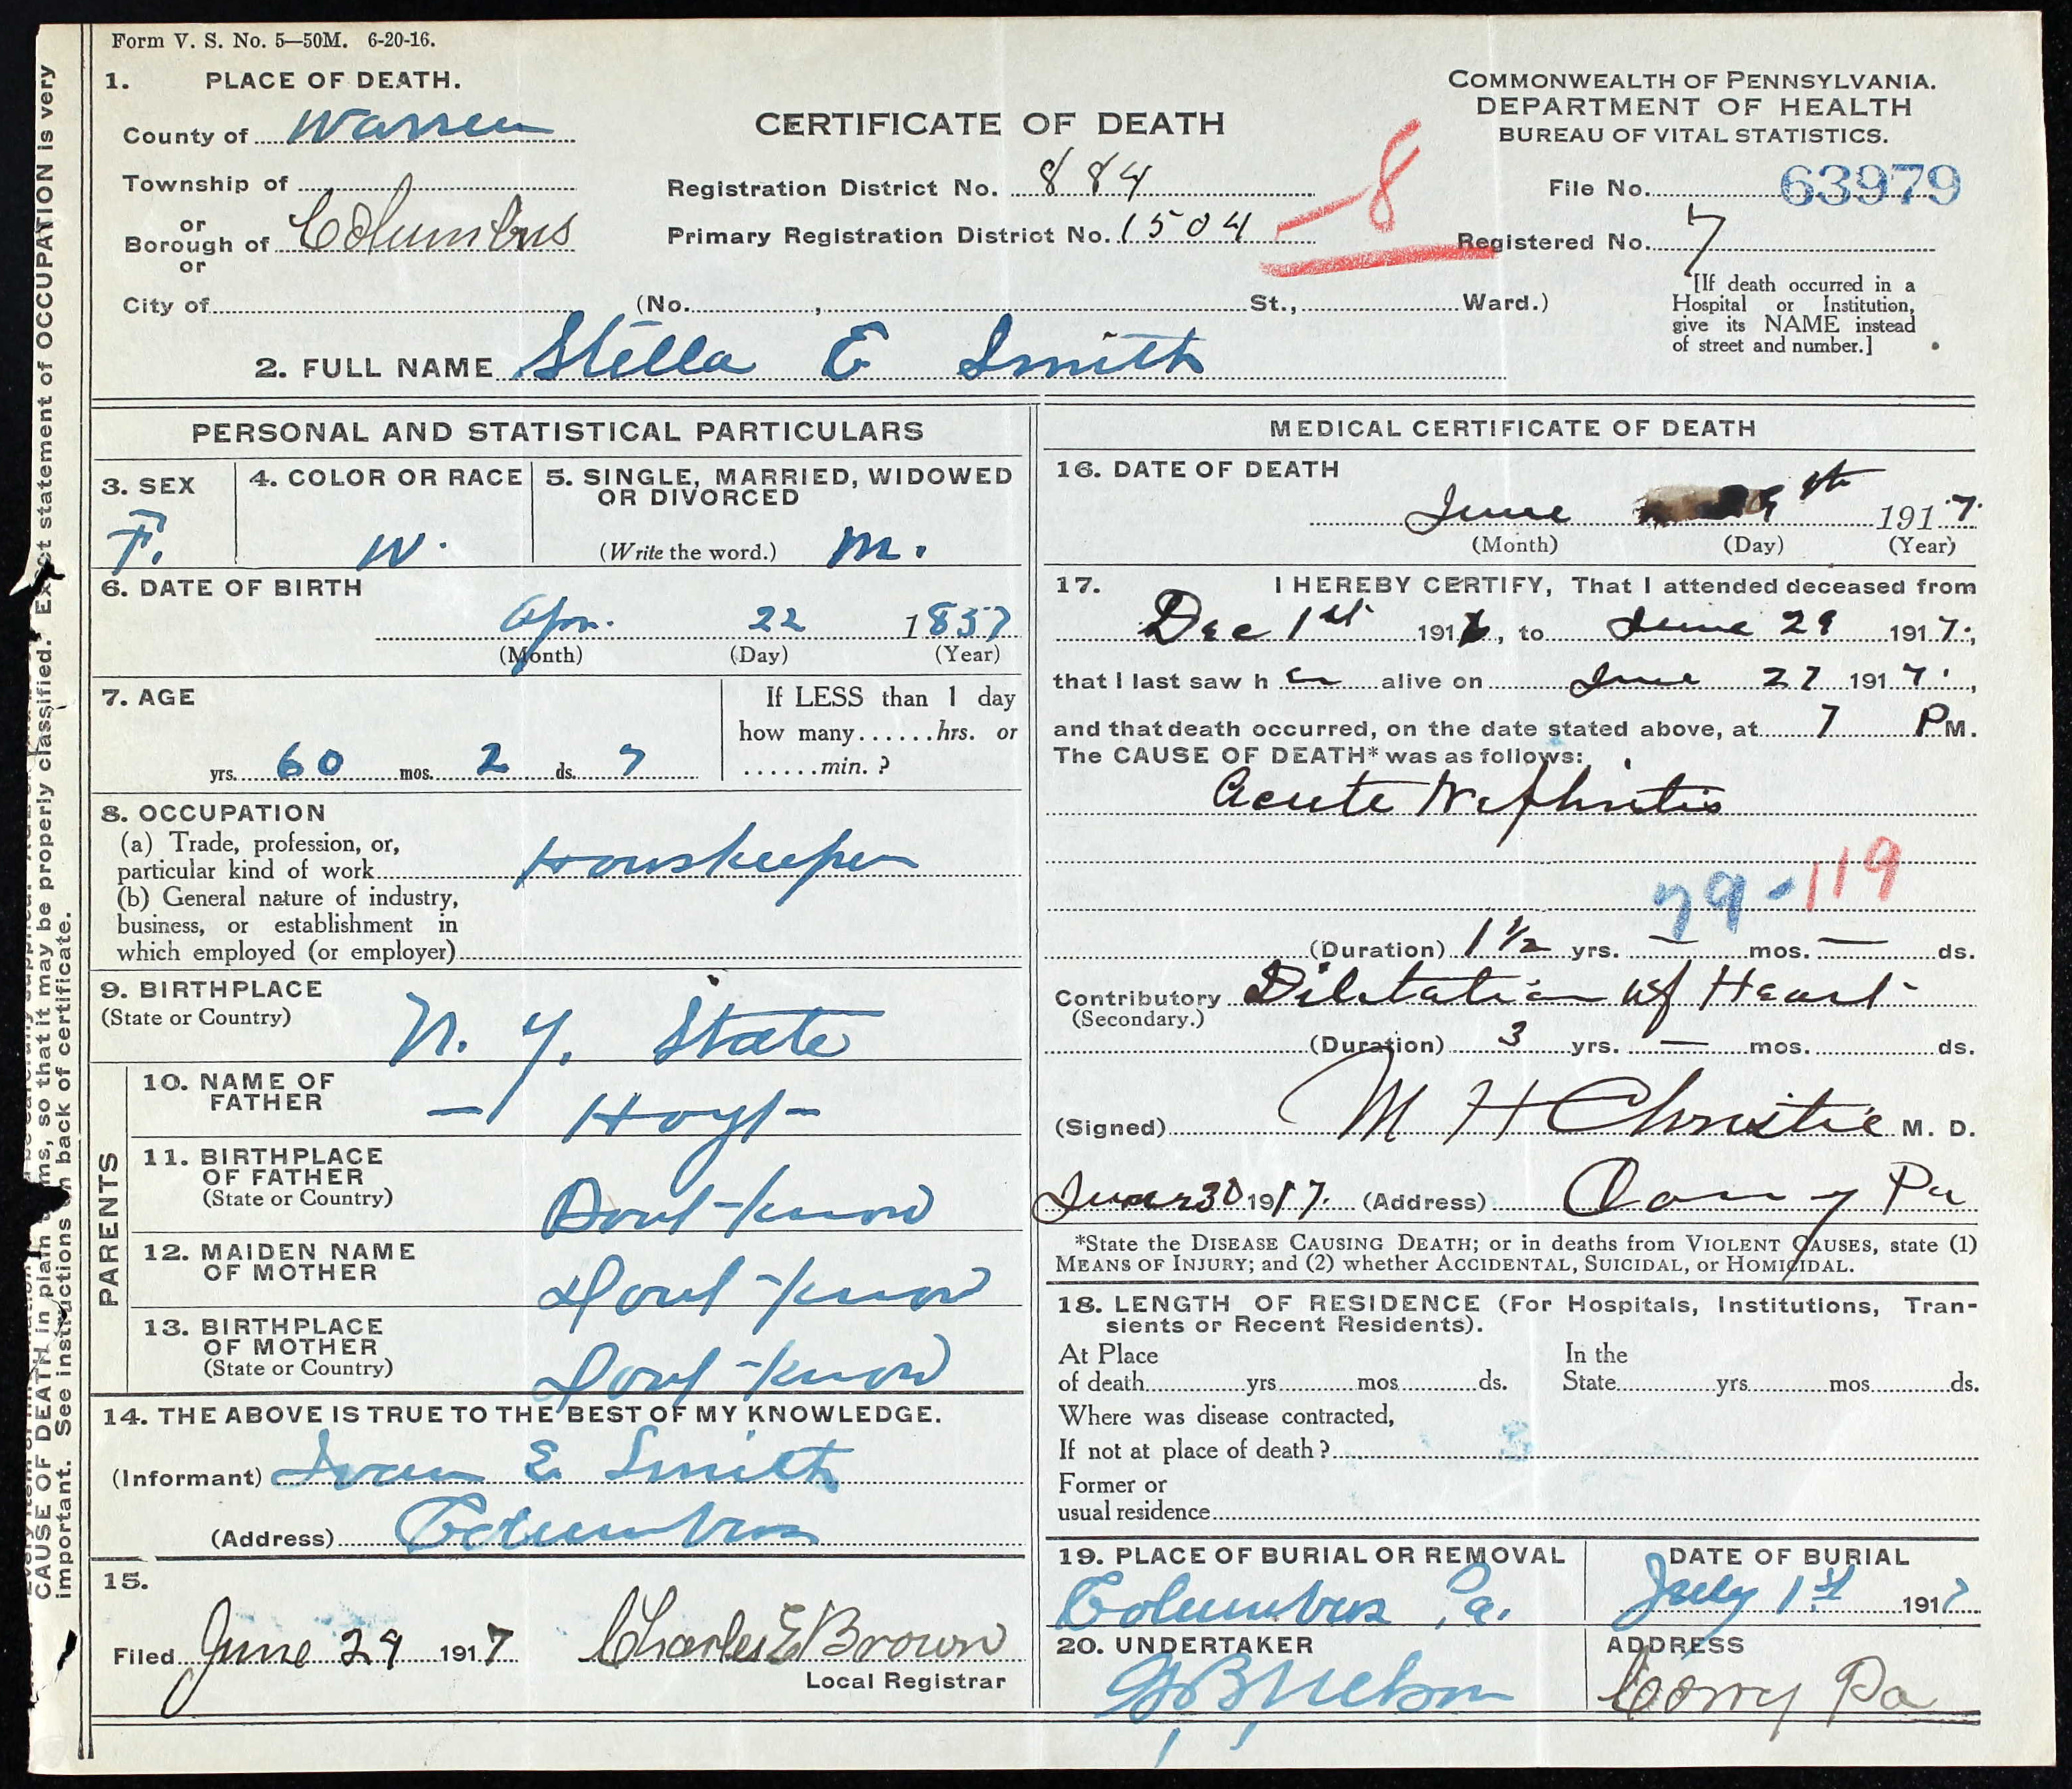 Form V. S. No. 5—50M. 6-20-16.
1. PLACE OF DEATH.
County of Warren
Township of
or
Borough of Columbus
or
City of (No. , St., Ward.)
CERTIFICATE OF DEATH
Registration District No. 884
Primary Registration District No. 1504
-8
COMMONWEALTH OF PENNSYLVANIA.
DEPARTMENT OF HEALTH
BUREAU OF VITAL STATISTICS.
File No. 63979
Registered No. 7
[If death occurred in a
Hospital or Institution,
give its NAME instead
of street and number.]
2. FULL NAME Stella E Smith
PERSONAL AND STATISTICAL PARTICULARS
3. SEX
F.
4. COLOR OR RACE
W.
5. SINGLE, MARRIED, WIDOWED
OR DIVORCED
(Write the word.) M.
6. DATE OF BIRTH
Apr. 22 1857
(Month) (Day) (Year)
7. AGE
yrs. 60 mos. 2 ds. 7
If LESS than 1 day
how many......hrs. or
......min. ?
8. OCCUPATION
(a) Trade, profession, or,
particular kind of work Houskeeper
(b) General nature of industry,
business, or establishment in
which employed (or employer)
9. BIRTHPLACE
(State or Country)
N. Y. State
PARENTS
10. NAME OF
FATHER
— Hoyt —
11. BIRTHPLACE
OF FATHER
(State or Country)
Dont-know
12. MAIDEN NAME
OF MOTHER
Dont-know
13. BIRTHPLACE
OF MOTHER
(State or Country)
Dont-know
14. THE ABOVE IS TRUE TO THE BEST OF MY KNOWLEDGE.
(Informant) Ivan E. Smith
(Address) Columbus
15.
Filed June 29 1917 Charles E Brown
Local Registrar
MEDICAL CERTIFICATE OF DEATH
16. DATE OF DEATH
June 9th 1917.
(Month) (Day) (Year)
17. I HEREBY CERTIFY, That I attended deceased from
Dec 1st 1916, to June 29 1917.,
that I last saw h er alive on June 27 1917.,
and that death occurred, on the date stated above, at 7 PM.
The CAUSE OF DEATH* was as follows:
Acute Nephritis
79-119
(Duration) 1 1/2 yrs. — mos. — ds.
Contributory Dilitation of Heart
(Secondary.)
(Duration) 3 yrs. — mos. ds.
(Signed) M H Christie M. D.
June 30 1917. (Address) Corry Pa
*State the DISEASE CAUSING DEATH; or in deaths from VIOLENT CAUSES, state (1)
MEANS OF INJURY; and (2) whether ACCIDENTAL, SUICIDAL, or HOMICIDAL.
18. LENGTH OF RESIDENCE (For Hospitals, Institutions, Tran-
sients or Recent Residents).
At Place
of death yrs mos ds.
In the
State yrs mos ds.
Where was disease contracted,
If not at place of death ?
Former or
usual residence
19. PLACE OF BURIAL OR REMOVAL
Columbus Pa.
DATE OF BURIAL
July 1st 1917
20. UNDERTAKER
ADDRESS
Corry Pa
CAUSE OF DEATH in plain terms, so that it may be properly classified. Exact statement of OCCUPATION is very
important. See instructions on back of certificate.